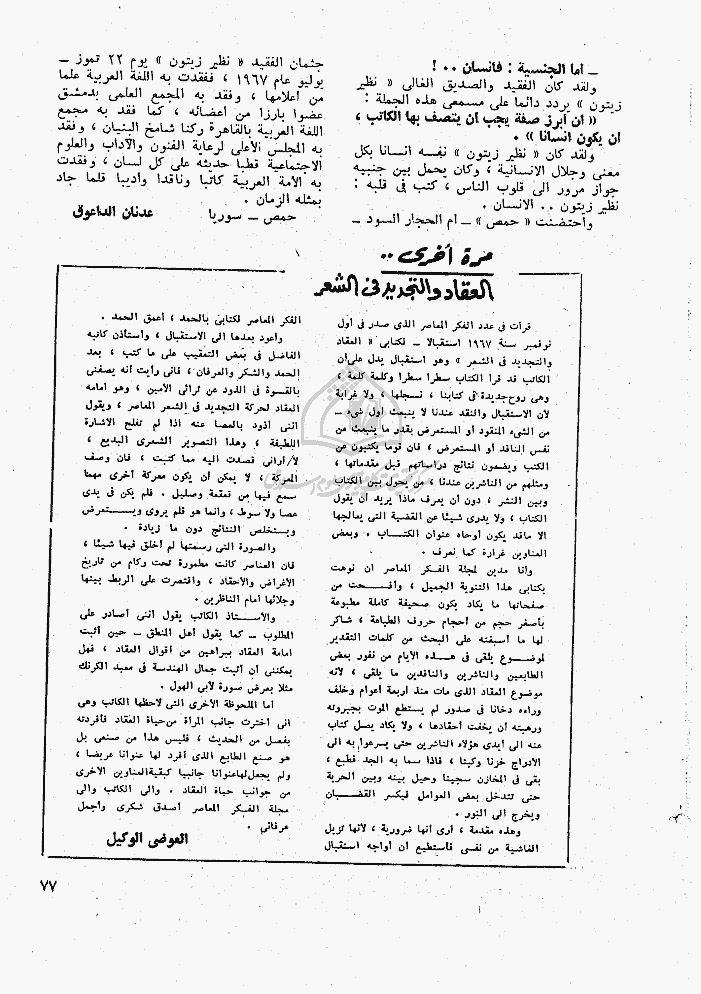 ـ أما الجنسية : فانسان ٠٠ !
ولقد كان الفقيد والصديق الغالى « نظير
زيتون » يردد دائما على مسمعى هذه الجملة :
« ان أبرز صفة يجب ان يتصف بها الكاتب ،
ان يكون انسانا » .
ولقد كان « نظير زيتون » نفسه انسانا بكل
معنى وجلال الانسانية ، وكان يحمل بين جنبيه
جواز مرور الى قلوب الناس ، كتب فى قلبه :
نظير زيتون .. الانسان .
واحتضنت « حمص » ـ ام الحجار السود ـ
جثمان الفقيد « نظير زيتون » يوم ٢٢ تموز ـ
يوليو عام ١٩٦٧ ، ففقدت به اللغة العربية علما
من أعلامها ، وفقد به المجمع العلمى بدمشق
عضوا بارزا من أعضائه ، كما فقد به مجمع
اللغة العربية بالقاهرة ركنا شامخ البنيان ، وفقد
به المجلس الأعلى لرعاية الفنون والآداب والعلوم
الاجتماعية قطبا حديثه على كل لسان ، وفقدت
به الأمة العربية كاتبا وناقدا وأديبا قلما جاد
بمثله الزمان .
حمص ـ سوريا عدنان الداعوق
مرة أخرى ..
العقاد والتجديد فى الشعر
قرأت فى عدد الفكر المعاصر الذى صدر فى أول
نوفمبر سنة ١٩٦٧ استقبالا ـ لكتابى « العقاد
والتجديد فى الشعر » وهو استقبال يدل على أن
الكاتب قد قرأ الكتاب سطرا سطرا وكلمة كلمة ،
وهى روح جديدة فى كتابنا ، نسجلها ، ولا غرابة
لأن الاستقبال والنقد عندنا لا ينبعث أول شىء ـ
من الشىء المنقود أو المستعرض بقدر ما ينبعث من
نفس الناقد أو المستعرض ، فان قوما يكتبون عن
الكتب ويضعون نتائج دراساتهم قبل مقدماتها ،
ومثلهم من الناشرين عندنا ، من يحول بين الكتاب
وبين النشر ، دون أن يعرف ماذا يريد أن يقول
الكتاب ، ولا يدرى شيئا عن القضية التى يعالجها
الا ماقد يكون أوحاه عنوان الكتـــاب . وبعض
العناوين غرارة كما نعرف .
وأنا مدين لمجلة الفكر المعاصر ان نوهت
بكتابى هذا التنويه الجميل ، وأفســـحت من
صفحاتها ما يكاد يكون صحيفة كاملة مطبوعة
بأصغر حجم من أحجام حروف الطباعة ، شاكر
لها ما أسبغته على البحث من كلمات التقدير
لموضــوع يلقى فى هـــذه الأيام من نفور بعض
الطابعين والناشرين والناقدين ما يلقى ، لأنه
موضوع العقاد الذى مات منذ أربعة أعوام وخلف
وراءه دخانا فى صدور لم يستطع الموت بجبروته
ورهبته أن يخفت أحقادها ، ولا يكاد يصل كتاب
عنه الى أيدى هؤلاء الناشرين حتى يسرعوا به الى
الأدراج خزنا وكبتا ، فاذا سما به الجد قطيع ،
بقى فى المخازن سجينا وحيل بينه وبين الحرية
حتى تتدخل بعض العوامل فيكسر القضـــبان
ويخرج الى النور .
وهذه مقدمة ، أرى أنها ضرورية ، لأنها تزيل
الغاشية من نفسى فأستطيع أن أواجه استقبال
الفكر المعاصر لكتابى بالحمد ، أعمق الحمد .
وأعود بعدها الى الاستقبال ، وأستأذن كاتبه
الفاضل فى بعض التعقيب على ما كتب ، بعد
الحمد والشكر والعرفان ، فانى رأيت أنه يصفنى
بالقسوة فى الذود عن تراثى الأمين ، وهو امامة
العقاد لحركة التجديد فى الشعر المعاصر ، ويقول
اننى أذود بالعصا عنه اذا لم تفلح الاشارة
اللطيفة ، وهذا التصوير الشعرى البديع ،
لا أرانى قصدت اليه مما كتبت ، فان وصف
المعركة ، لا يمكن أن يكون معركة أخرى مهما
سمع فيها من قعقعة وصليل . فلم يكن فى يدى
عصا ولا سوط ، وانما هو قلم يروى ويـــستعرض
ويستخلص النتائج دون ما زيادة .
والصورة التى رسمتها لم أخلق فيها شيئا ،
فان العناصر كانت مطمورة تحت ركام من تاريخ
الأغراض والأحقاد ، واقتصرت على الربط بينها
وجلائها أمام الناظرين .
والأســـتاذ الكاتب يقول اننى أصادر على
المطلوب ـ كما يقول أهل المنطق ـ حين أثبت
امامة العقاد ببراهين من أقوال العقاد ، فهل
يمكننى أن أثبت جمال الهندسة فى معبد الكرنك
مثلا بعرض صورة لأبى الهول .
أما الملحوظة الأخرى التى لاحظها الكاتب وهى
انى اخترت جانب المرأة من حياة العقاد فأفردته
بفصل من الحديث ، فليس هذا من صنعى بل
هو صنع الطابع الذى أفرد لها عنوانا عريضا ،
ولم يجعل لها عنوانا جانبيا كبقية العناوين الأخرى
من جوانب حياة العقاد . والى الكاتب والى
مجلة الفــكر المعاصر أصدق شكرى وأجمل
عرفانى .
العوضى الوكيل
٧٧